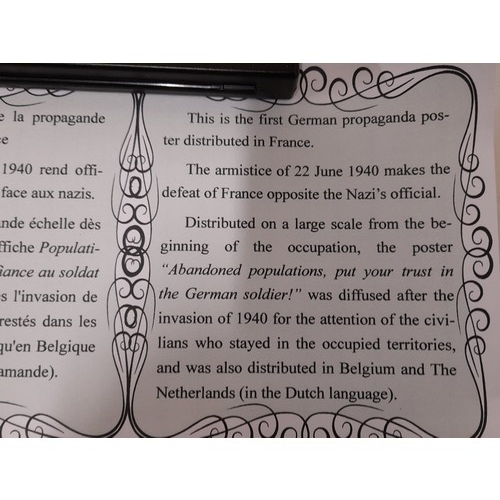 e la propagande
e
1940 rend offi-
face aux nazis.
nde échelle dès
ffiche Populati-
fiance au soldat
s l'invasion de
restés dans les
qu'en Belgique
amande).
This is the first German propaganda pos-
ter distributed in France.
The armistice of 22 June 1940 makes the
defeat of France opposite the Nazi's official.
Distributed on a large scale from the be-
ginning of the occupation, the poster
“Abandoned populations, put your trust in
the German soldier!” was diffused after the
invasion of 1940 for the attention of the civi-
lians who stayed in the occupied territories,
and was also distributed in Belgium and The
Netherlands (in the Dutch language).